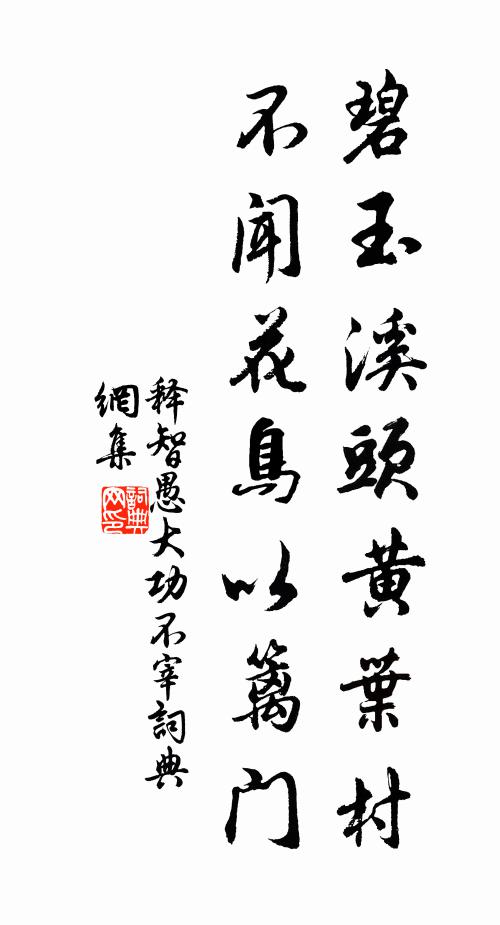 碧玉溪頭黄葉村
不闻花鳥以籬门
释智愚大功不宰詞典
網集
詞典网印